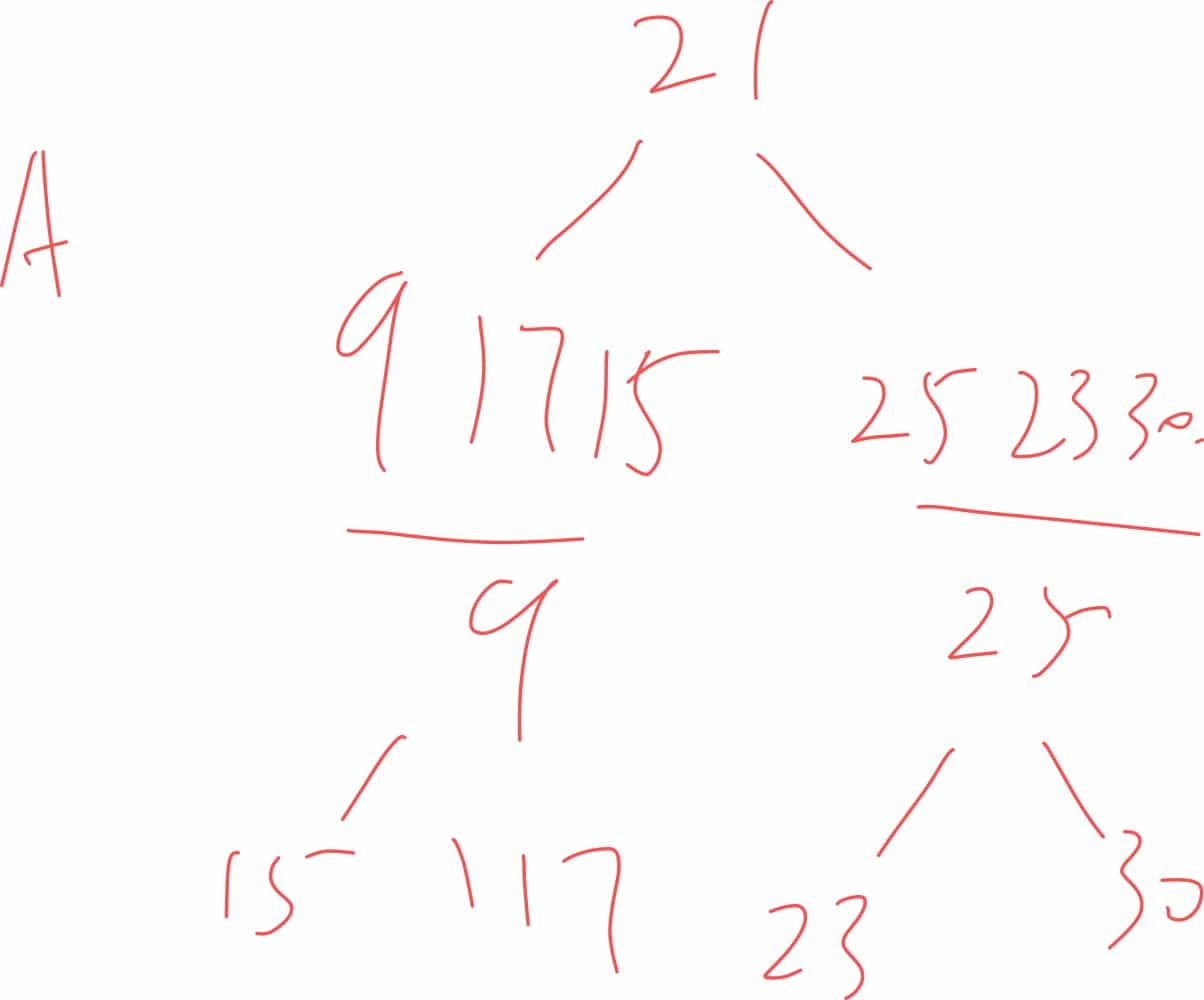 21
A
9 17 15 25 23 30.
9 25
15 17 23 30